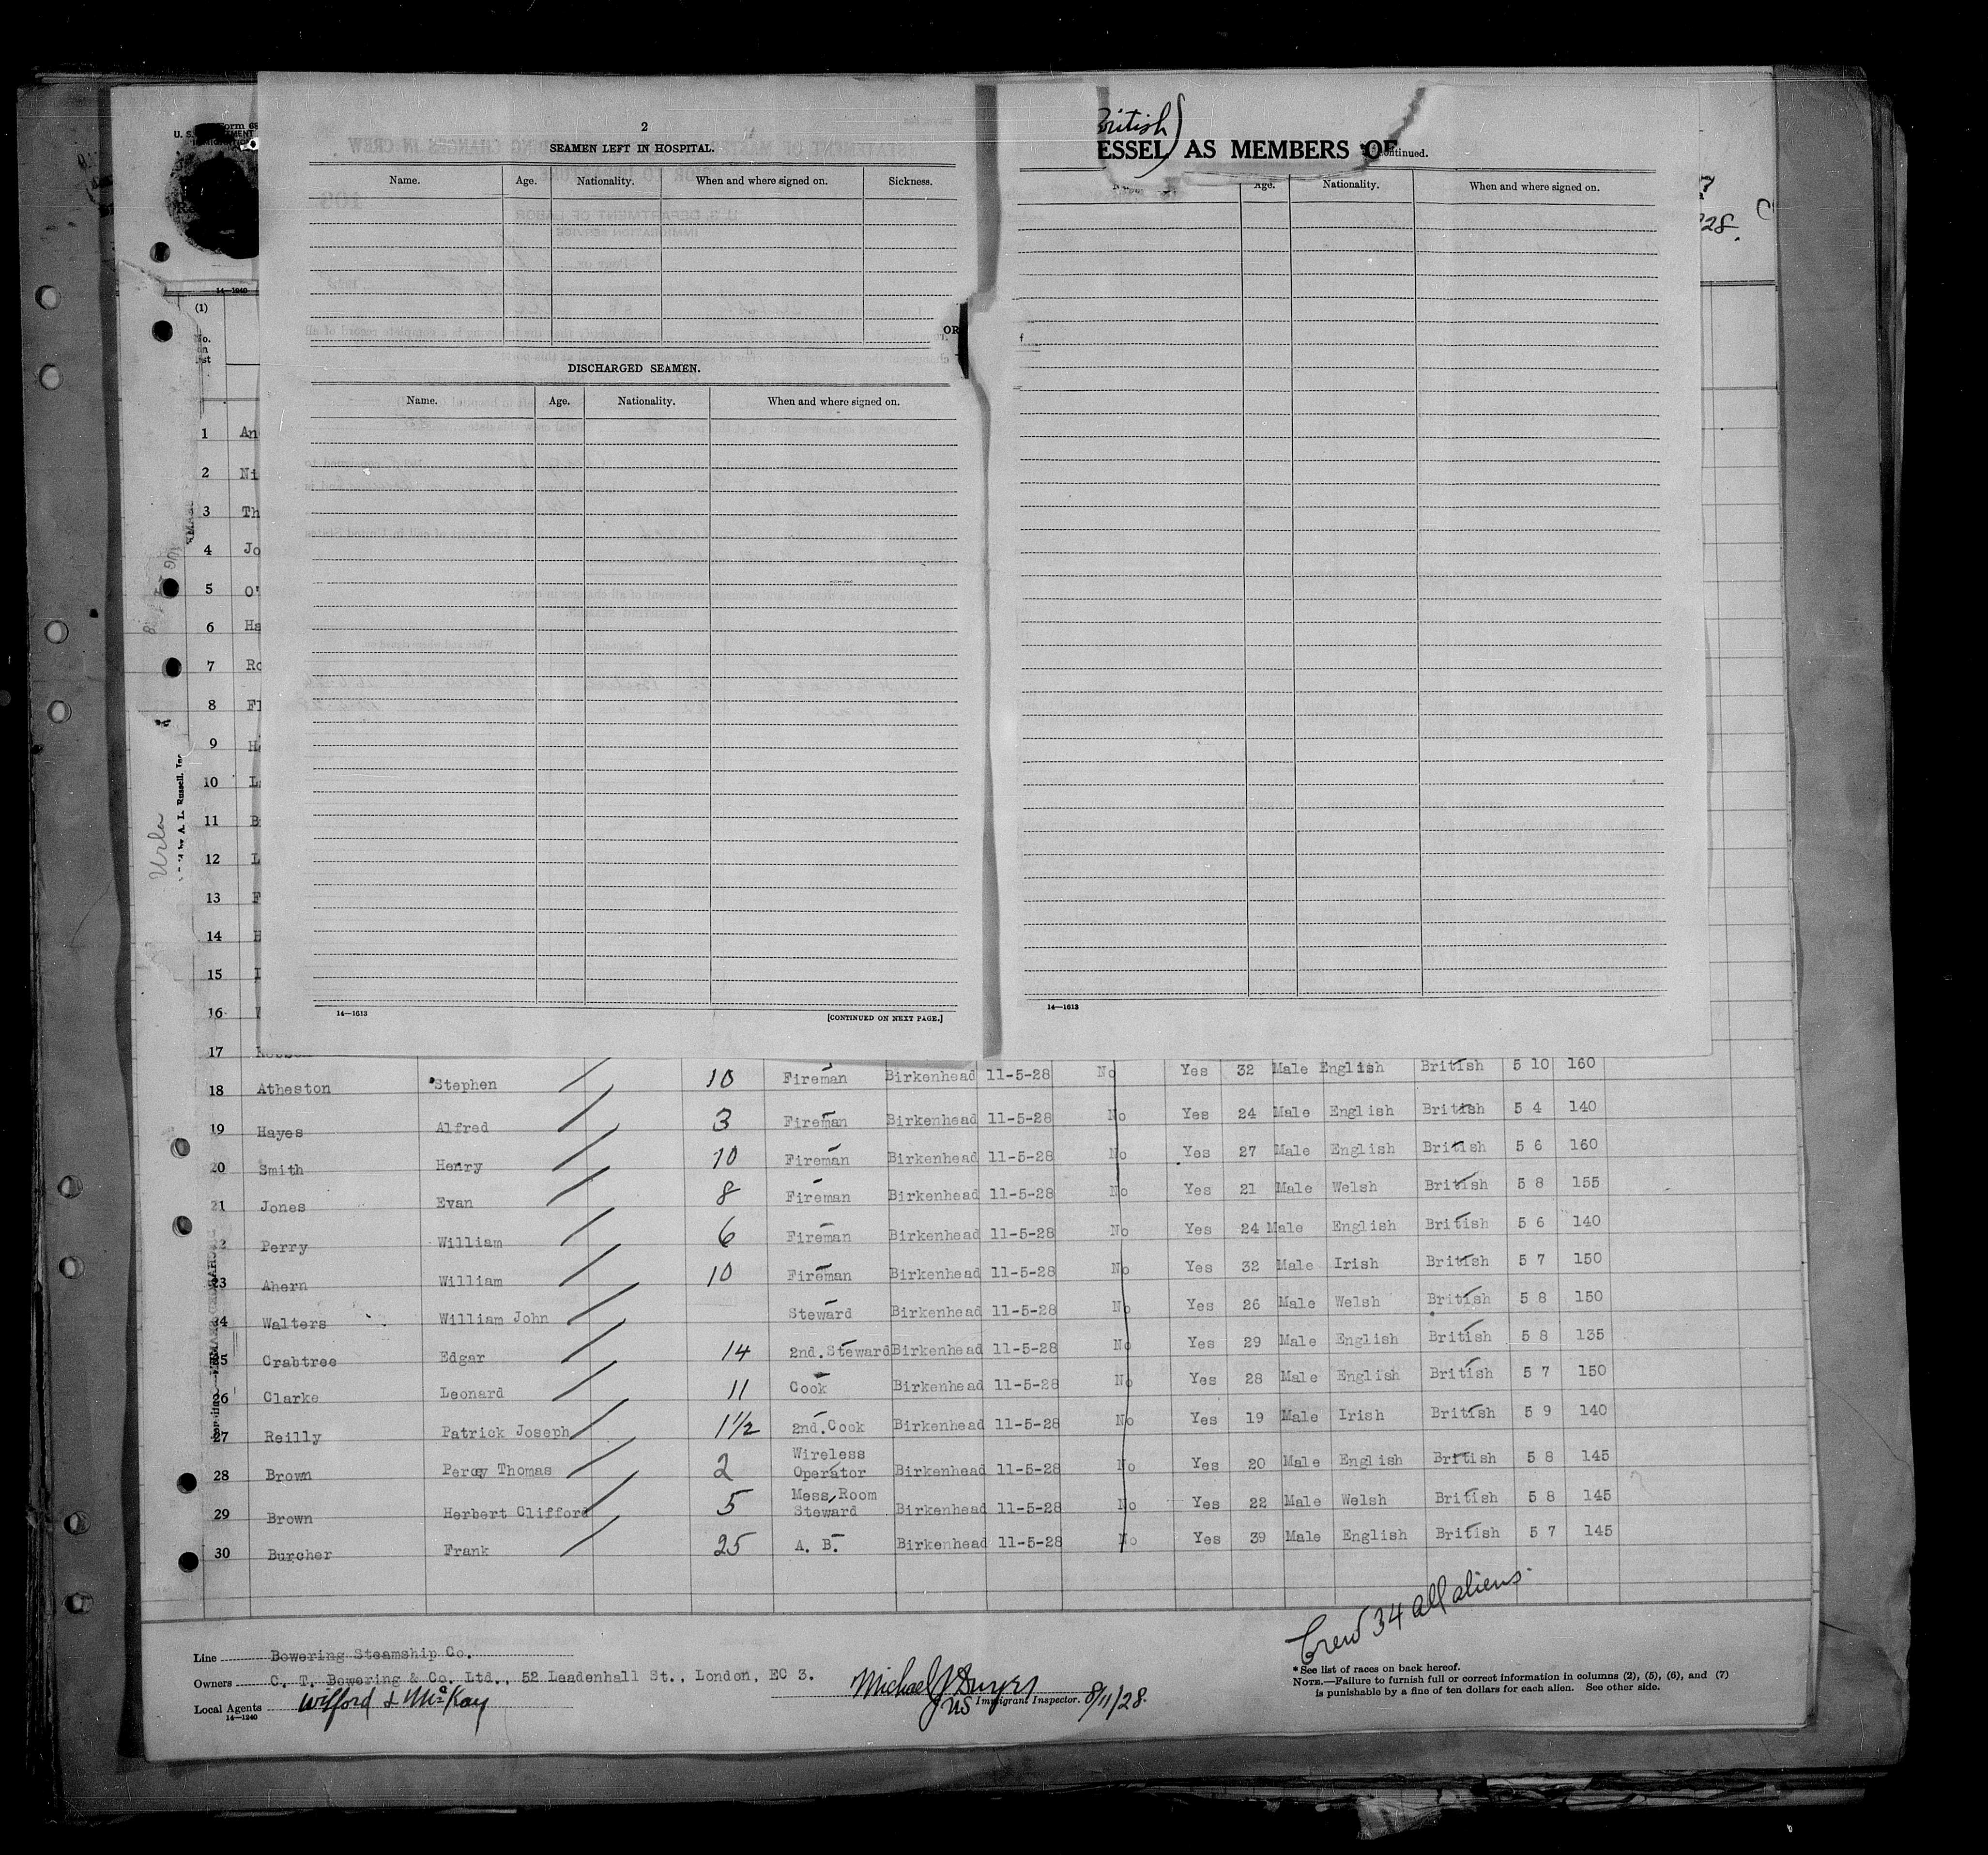 2
SEAMEN LEFT IN HOSPITAL.
Name. Age. Nationality. When and where signed on. Sickness.
DISCHARGED SEAMEN.
Name. Age. Nationality. When and where signed on.
14—1613 [CONTINUED ON NEXT PAGE.]
British)
ESSEL AS MEMBERS OF
Continued.
Age. Nationality. When and where signed on.
14—1613
28.
OR
U. S.
14—1240
(1)
No. on list
Urla
by A. L. Russell, Inc
1 An
2 Ni
3 Th
4 Jo
5 O'
6 Ha
7 Ro
8 Fl
9 H
10 L
11 B
12 L
13 F
14 H
15
16
17
18 Atheston Stephen 10 Fireman Birkenhead 11-5-28 No Yes 32 Male English British 5 10 160
19 Hayes Alfred 3 Fireman Birkenhead 11-5-28 No Yes 24 Male English British 5 4 140
20 Smith Henry 10 Fireman Birkenhead 11-5-28 No Yes 27 Male English British 5 6 160
21 Jones Evan 8 Fireman Birkenhead 11-5-28 No Yes 21 Male Welsh British 5 8 155
2 Perry William 6 Fireman Birkenhead 11-5-28 No Yes 24 Male English British 5 6 140
3 Ahern William 10 Fireman Birkenhead 11-5-28 No Yes 32 Male Irish British 5 7 150
4 Walters William John Steward Birkenhead 11-5-28 No Yes 26 Male Welsh British 5 8 150
5 Crabtree Edgar 14 2nd. Steward Birkenhead 11-5-28 No Yes 29 Male English British 5 8 135
26 Clarke Leonard 11 Cook Birkenhead 11-5-28 No Yes 28 Male English British 5 7 150
27 Reilly Patrick Joseph 1½ 2nd. Cook Birkenhead 11-5-28 No Yes 19 Male Irish British 5 9 140
28 Brown Percy Thomas 2 Wireless Operator Birkenhead 11-5-28 No Yes 20 Male English British 5 8 145
29 Brown Herbert Clifford 5 Mess Room Steward Birkenhead 11-5-28 No Yes 22 Male Welsh British 5 8 145
30 Burcher Frank 25 A. B. Birkenhead 11-5-28 No Yes 39 Male English British 5 7 145
Crew 34 all aliens.
Line Bowering Steamship Co.
Owners C. T. Bowering & Co. Ltd., 52 Leadenhall St., London, EC 3.
Local Agents Wilford & McKay
14—1240
Michael J Dwyer
US Immigrant Inspector. 8/11/28.
* See list of races on back hereof.
NOTE.—Failure to furnish full or correct information in columns (2), (5), (6), and (7)
is punishable by a fine of ten dollars for each alien. See other side.